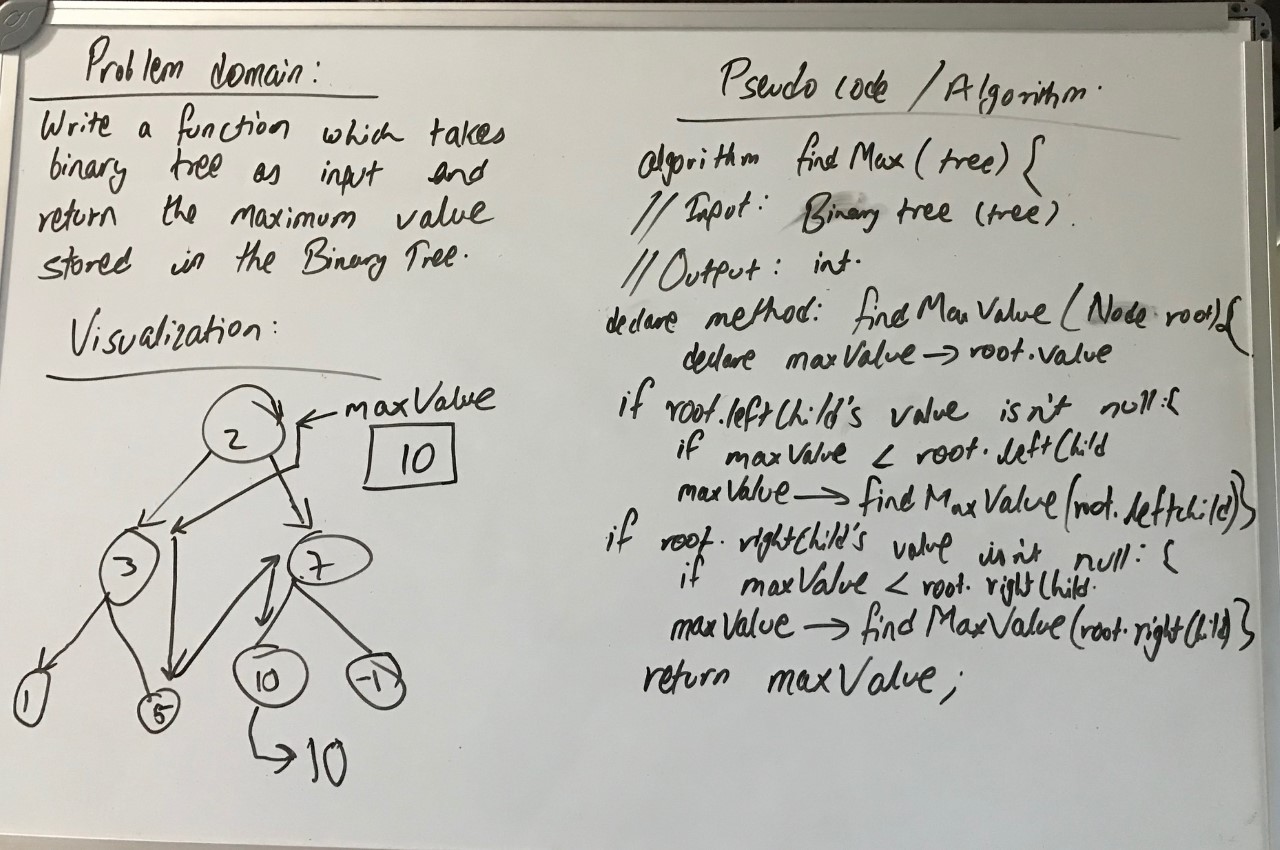 Problem domain:
Write a function which takes
binary tree as input and
return the maximum value
stored in the Binary Tree.
Visualization:
maxValue
10
2
3
7
1
5
10
-1
10
Pseudo code / Algorithm.
algorithm findMax (tree) {
// Input: Binary tree (tree).
// Output: int.
declare method: findMaxValue (Node root) {
declare maxValue → root.value
if root.leftChild's value isn't null:{
if maxValue < root.leftChild
maxValue → findMaxValue(root.leftchild)}
if root.rightChild's value isn't null: {
if maxValue < root.rightChild.
maxValue → findMaxValue(root.rightChild)}
return maxValue;